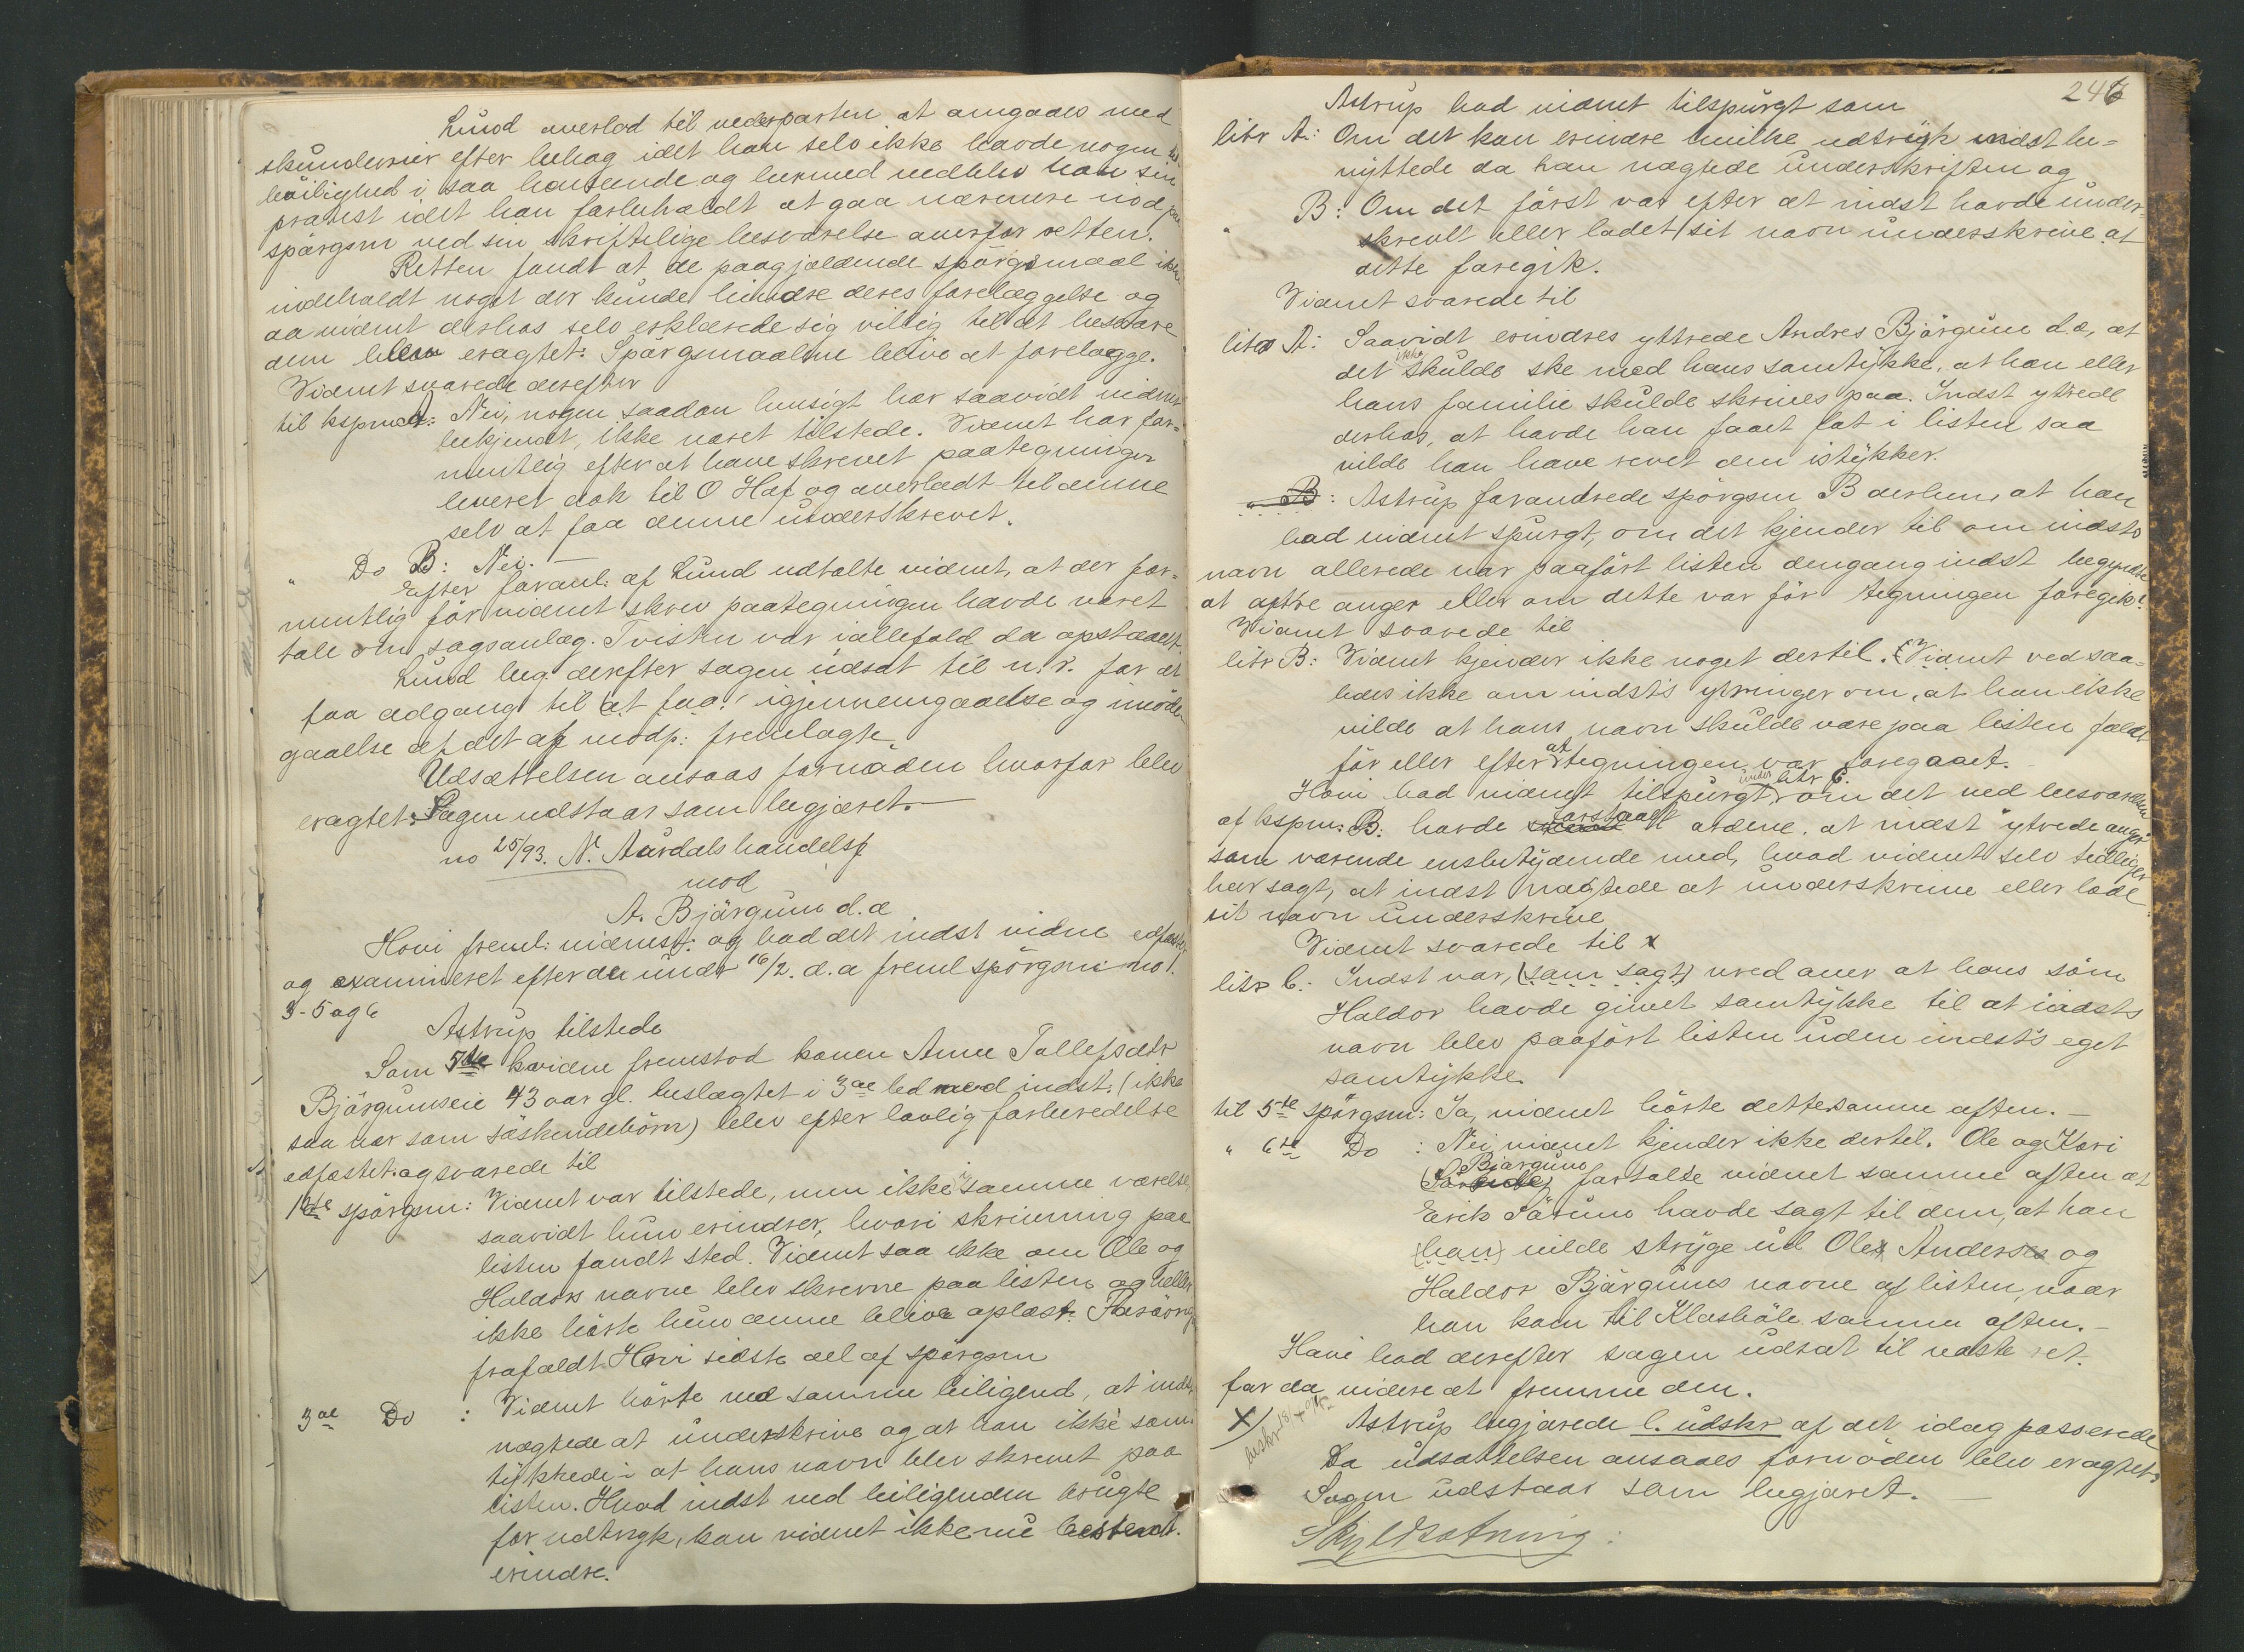 Lund overlod til vederparten at omgaaes med
skunderier efter behag idet han selv ikke havde nogen
beilighed i saa henseende og hermed nedblev han sin
protest idet han forbeholdt at gaa nærmere ind paa
spörgsm ved sin skriftelige besvarelse overfor retten.
Retten fandt at de paagjældende spörgsmaal ikke
indeholdt noget der kunde hindre deres forelæggelse og
da vidnet derhos selv erklærede sig villig til at besvare
dem blev eragtet: Spörgsmaalene blive at forelægge.
Vidnet svarede derefter
til kspm A: Nei, nogen saadan hensigt har saavidt vidnet
bekjendt, ikke været tilstede. Vidnet har for-
mentlig efter at have skrevet paategningen
leveret dok til O Hof og overladt til denne
selv at faa denne underskrevet.
" Do B: Nei. —
Efter foranl: af Lund udtalte vidnet, at der for-
mentlig för vidnet skrev paategningen havde været
tale om sagsanlæg. Tvisten var iallefald da opstaaet.
Lund beg. derefter sagen udsat til n. r. for at
faa adgang til at faa igjennemgaaelse og imöde-
gaaelse af det af modp: fremlagte
Udsættelsen ansaas fornöden hvorfor blev
eragtet: Sagen udstaar som begjæret. —
no 25/93. N. Aurdals handelsf
mod
A. Bjørgum d.æ
Hovi freml: vidnest: og bad det indst vidne edfæstet
og examineret efter de under 16/2. d.a freml spörgsm no 1.
3-5 og 6
Astrup tilstede
Som 5te kvidne fremstod konen Anne Tollefsdtr
Bjørgumseie 43 aar gl. beslægtet i 3de led med indst: (ikke
saa nær som söskendebörn) blev efter lovlig forberedelse
edfæstet og svarede til
1ste spörgsm: Vidnet var tilstede, men ikke i samme værelse
saavidt hun erindrer, hvori skrivning paa
listen fandt sted. Vidnet saa ikke om Ole og
Haldors navne blev skrevne paa listen og heller
ikke hörte hun denne blive oplæst. Forövrigt
frafaldt Hovi sidste del af spörgsm
3de Do : Vidnet hörte ved samme leiligend, at indst
nægtede at underskrive og at han ikke sam-
tykkede i at hans navn blev skrevet paa
listen. Hvad indst ved leiligenden brugte
for udtryk, kan vidnet ikke nu bestemt
erindre.
246
Astrup bad vidnet tilspurgt som
litr A: Om det kan erindre hvilke udtryk indst be-
nyttede da han nægtede underskriften og
" B: Om det först var efter at indst havde under-
skrevet eller ladet sit navn underskrive at
dette foregik.
Vidnet svarede til
litr A: Saavidt erindres yttrede Andres Bjørgum d.æ, at
det ikke skulde ske med hans samtykke, at han eller
hans familie skulde skrives paa. Indst yttrede
derhos, at havde han faaet fat i listen saa
vilde han have revet den istykker.
" B: Astrup forandrede spörgsm B derhen, at han
bad vidnet spurgt, om det kjender til om indsts
navn allerede var paafört listen dengang indst begyndte
at yttre anger eller om dette var för tegningen foregik?
Vidnet svarede til
litr B: Vidnet kjender ikke noget dertil. (Vidnet ved saa-
ledes ikke om indst's ytringer om, at han ikke
vilde at hans navn skulde være paa listen faldt
för eller efter at tegningen var foregaaet.
Hovi bad vidnet tilspurgt under litr C. om det ved besvarelsen
af kspm. B. havde forstaaet ordene, at indst "ytrede anger"
som værende enslydende med, hvad vidnet selv tidligere
har sagt, at indst nægtede at underskrive eller lade
sit navn underskrive
Vidnet svarede til
litr C.: Indst var, (som sagt) vred over at hans sön
Haldor havde givet samtykke til at indsts
navn blev paafört listen uden indst's eget
samtykke.
til 5te spörgsm: Ja, vidnet hörte dette samme aften. —
" 6te Do : Nei, vidnet kjender ikke dertil. Ole og Kari
Bjørgum fortalte vidnet samme aften at
Erik Sörum havde sagt til dem, at han
(han) vilde stryge ud Ole, Anders og
Haldor Bjørgums navne af listen, naar
han kom til Klashöle samme aften. —
Hovi bad derefter sagen udsat til næste ret.
for da videre at fremme den.
X) Astrup begjærede b. udskr af det idag passerede
Da udsættelsen ansaaes fornöden blev eragtet:
Sagen udstaar som begjæret. —
Skyldsætning: